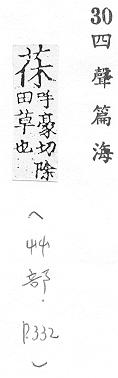 30 四聲篇海
茠 呼豪切除
田草也
(艸部. P.332)